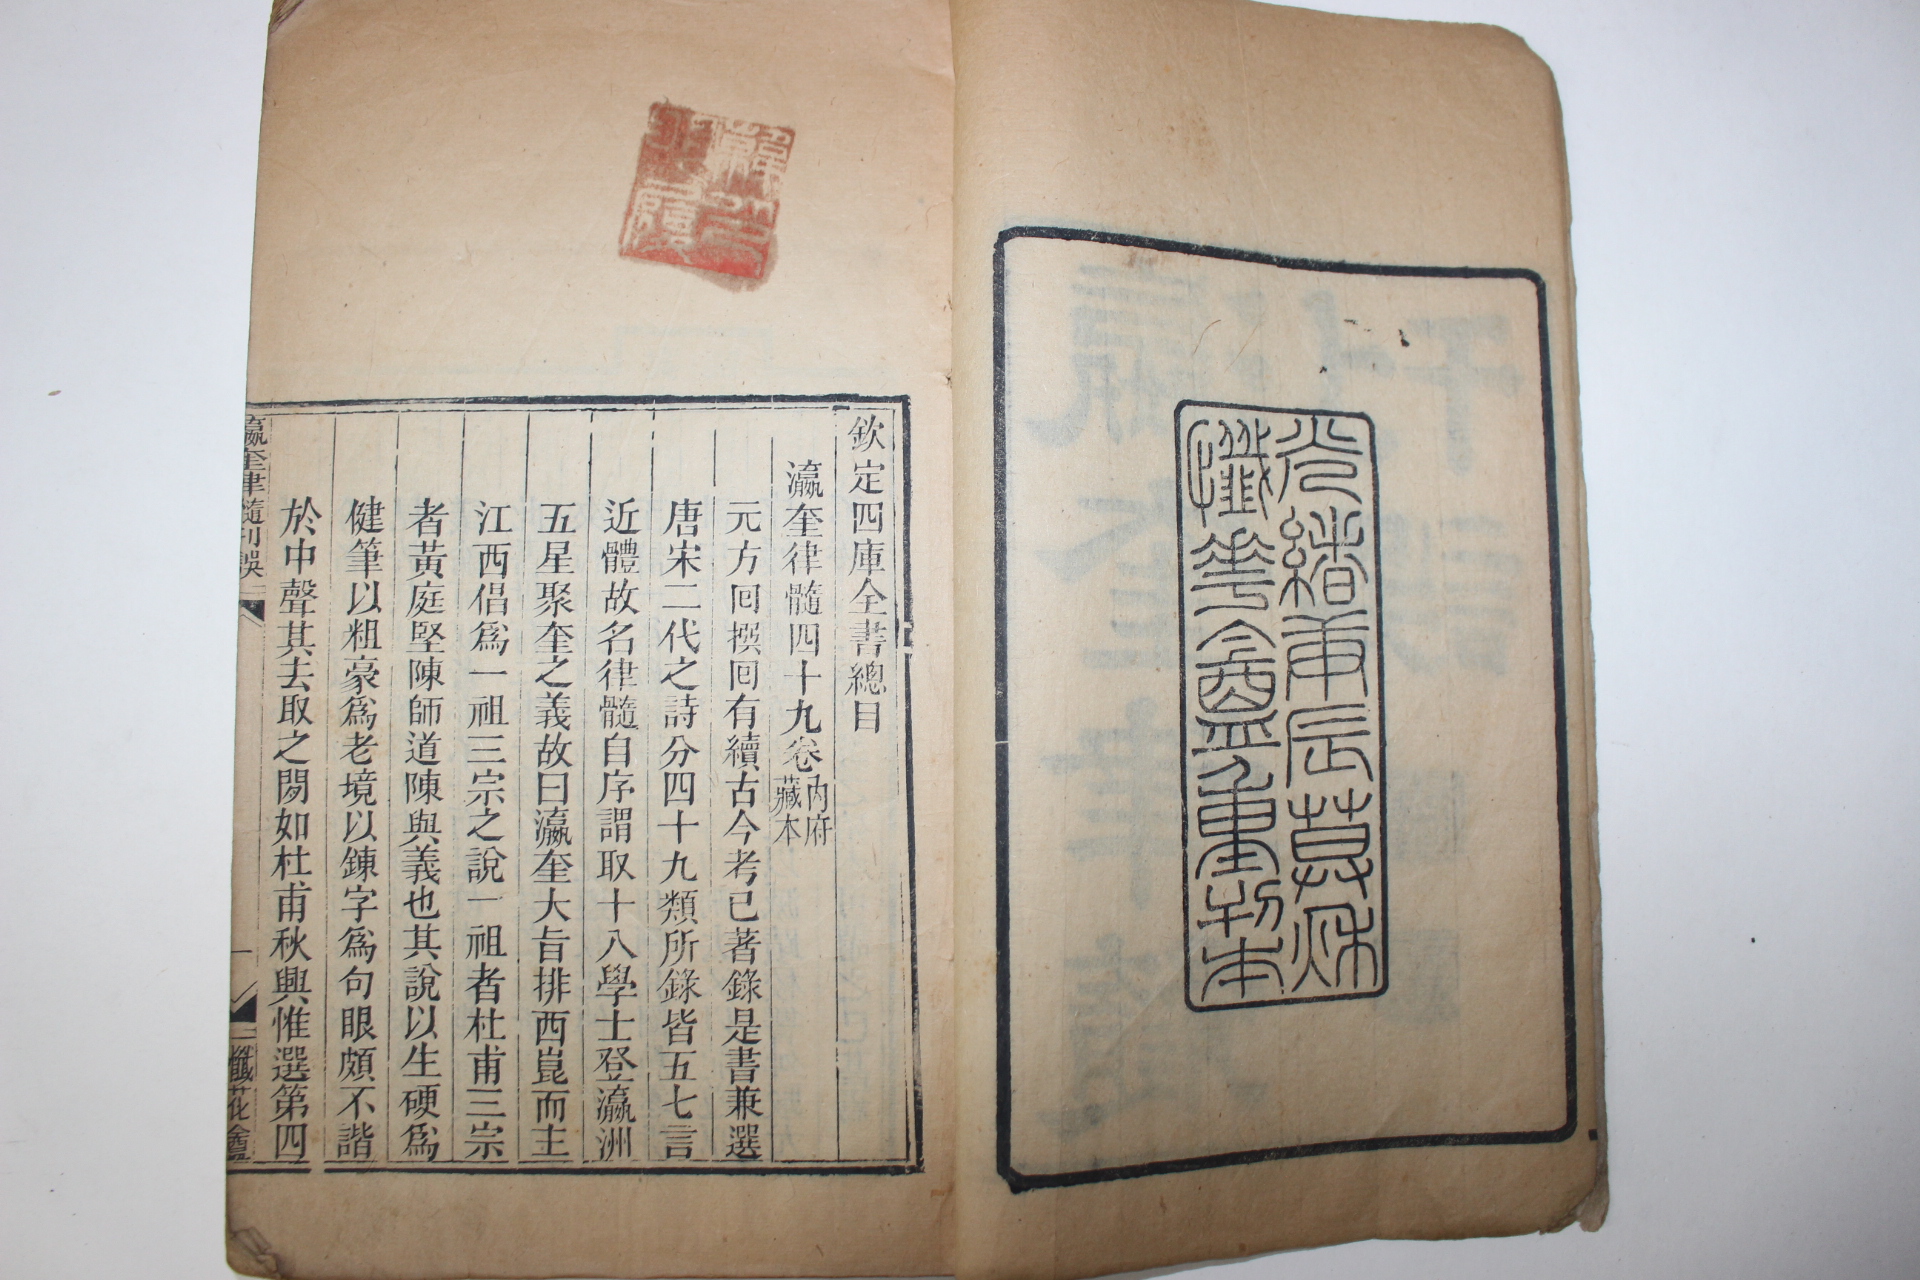 光緒庚辰莫秋
懺華盦重刊本
欽定四庫全書總目
瀛奎律髓四十九卷內府藏本
元方回撰回有續古今考已著錄是書兼選
唐宋二代之詩分四十九類所錄皆五七言
近體故名律髓自序謂取十八學士登瀛洲
五星聚奎之義故曰瀛奎大旨排西崑而主
江西倡爲一祖三宗之說一祖者杜甫三宗
者黃庭堅陳師道陳與義也其說以生硬爲
健筆以粗豪爲老境以鍊字爲句眼頗不諧
於中聲其去取之間如杜甫秋興惟選第四
瀛奎律髓刊誤
一
懺花盦